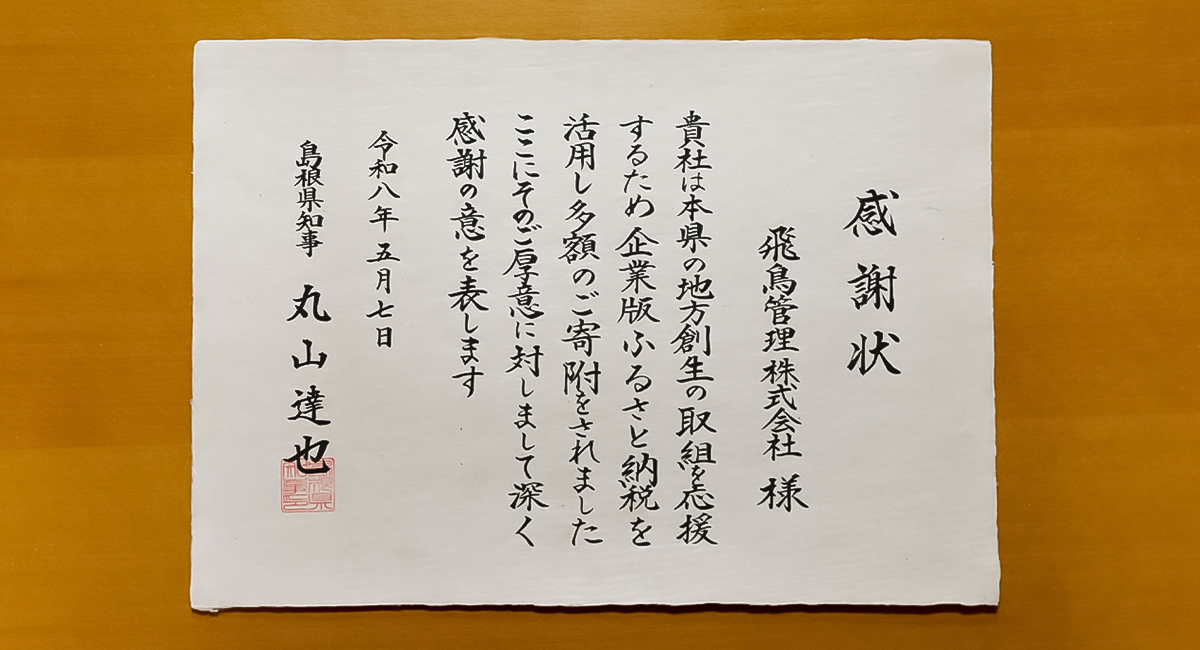 感謝状
飛鳥管理株式会社 様
貴社は本県の地方創生の取組を応援
するため企業版ふるさと納税を
活用し多額のご寄附をされました
ここにそのご厚意に対しまして深く
感謝の意を表します
令和八年五月七日
島根県知事 丸山達也